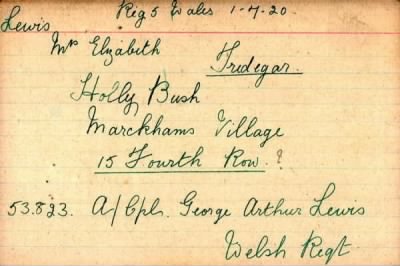 Reg 5 Wales 1-4-20.
Lewis
Mrs Elizabeth
Tredegar.
Holly Bush
Marckhams Village
15 Fourth Row. ?
53.823. A/Cpl. George Arthur Lewis
Welsh Regt.